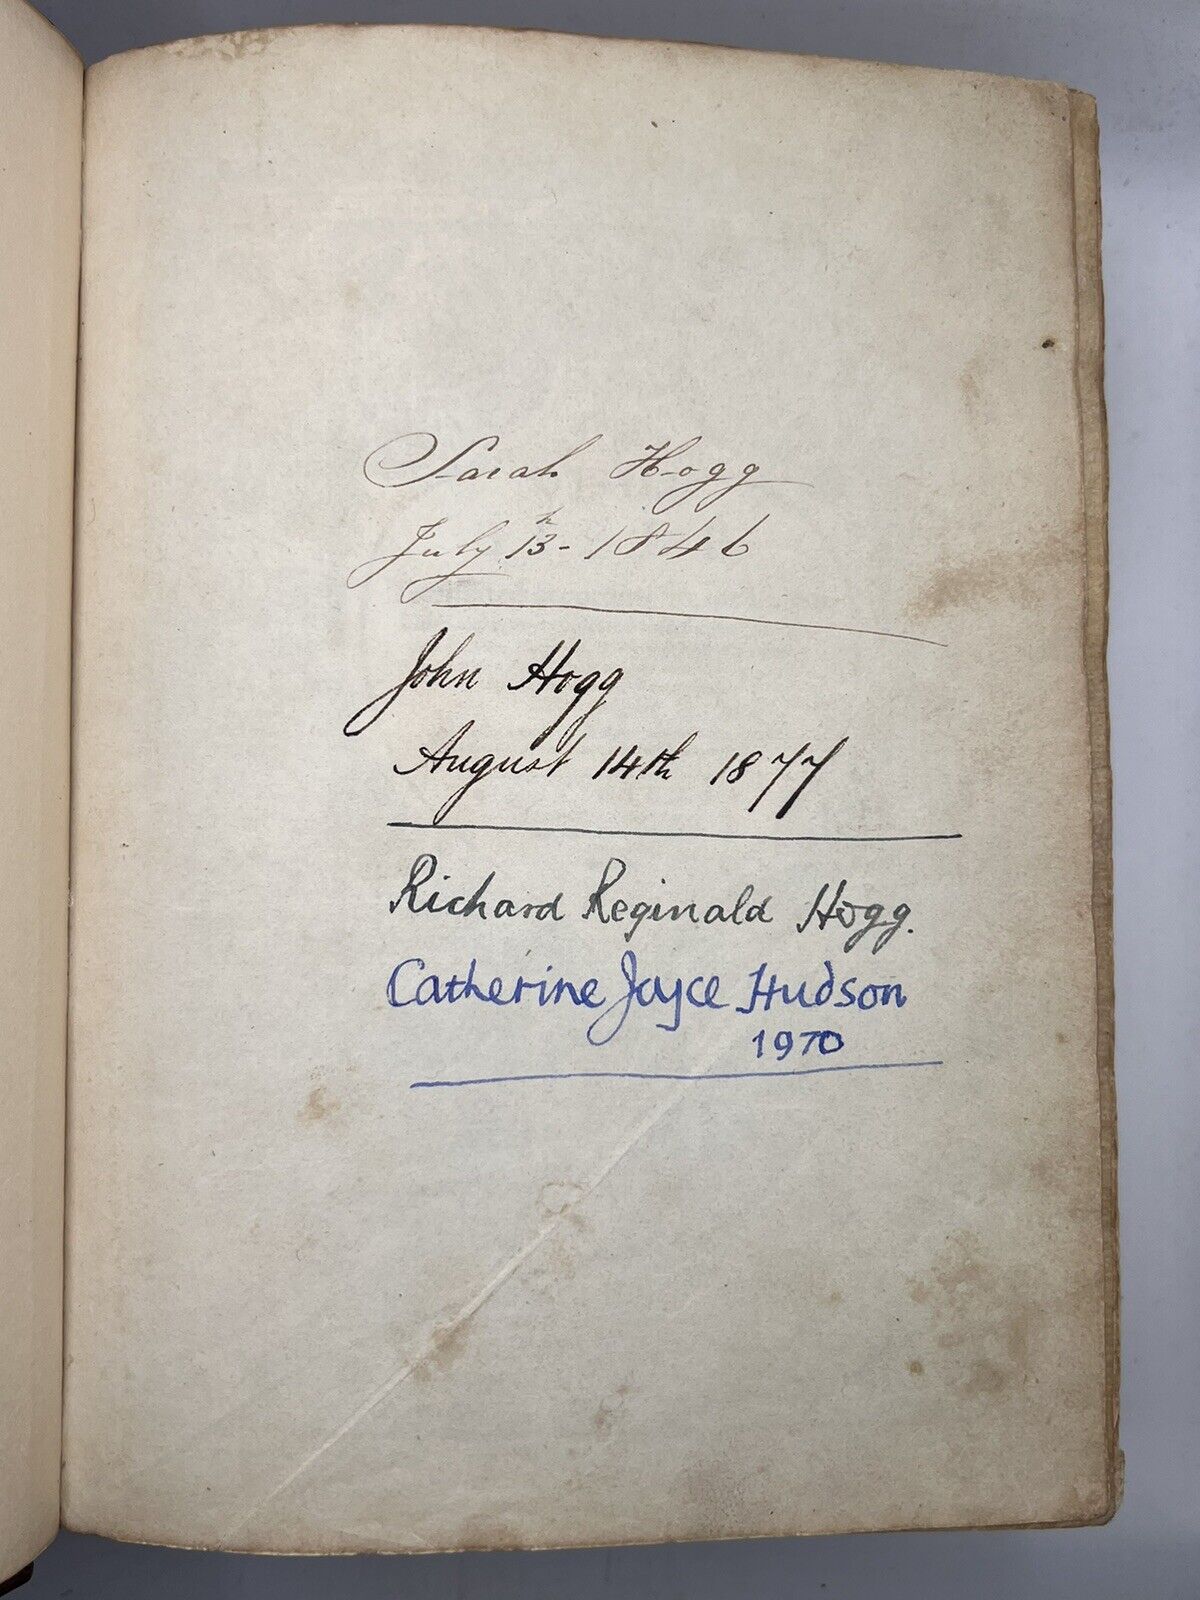 Sarah Hogg
July 13th - 1846
John Hogg
August 14th 1877
Richard Reginald Hogg.
Catherine Joyce Hudson
1970